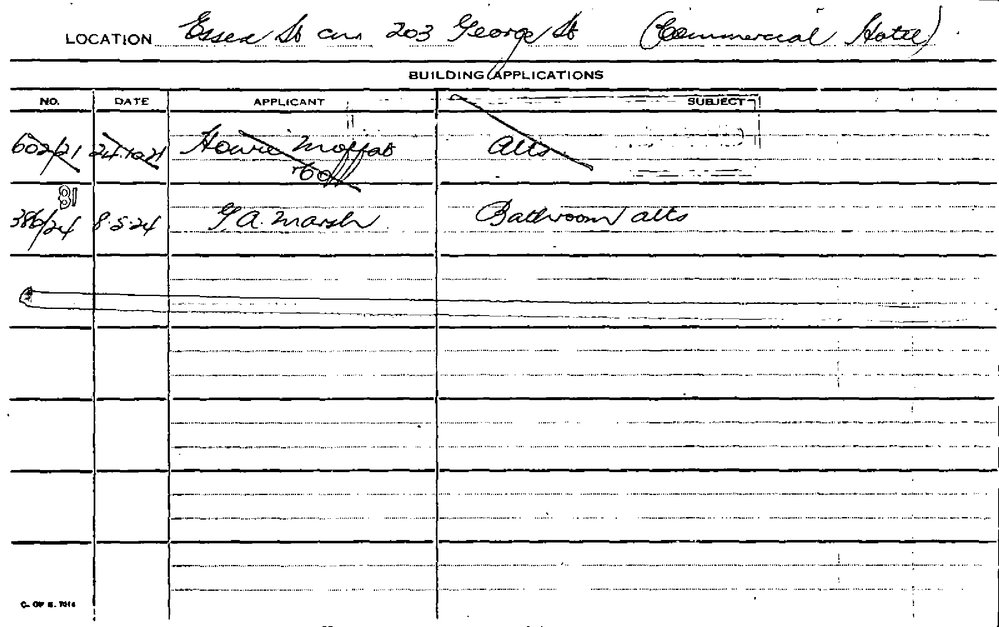 LOCATION Essex St cnr 203 George St (Commercial Hotel)
BUILDING APPLICATIONS
NO. DATE APPLICANT SUBJECT
602/21 24.10.21 Howie Moffat Alts
& Co
386/24 8.5.24 G.A. Marsh Bathroom alts
C. OF S. 7014